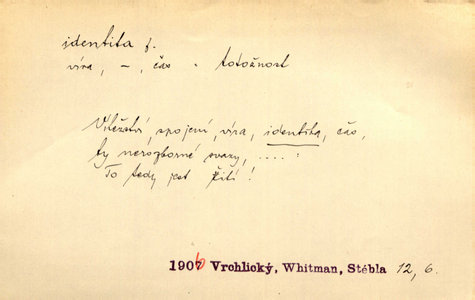 identita f.
víra, –, čas - totožnost
Vítězství, spojení, víra, identita, čas,
ty nerozborné svazy, .... :
To tedy jest žití !
1906 Vrchlický, Whitman, Stébla 12, 6.